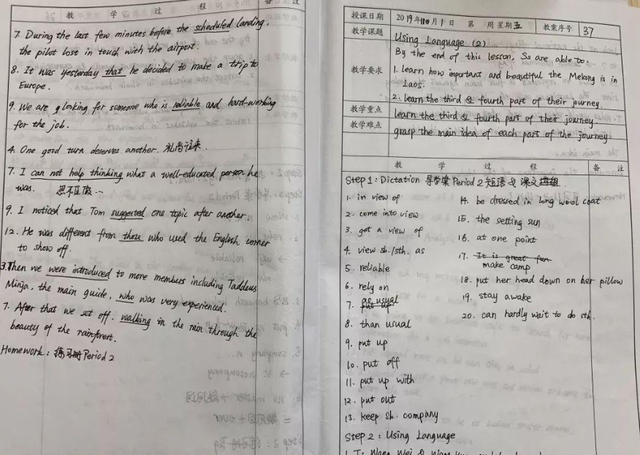 教 学 过 程 备 注
7. During the last few minutes before the scheduled landing,
the pilot lost in touch with the airport.
8. It was yesterday that he decided to make a trip to
Europe.
9. We are looking for someone who is reliable and hard-working
for the job.
4. One good turn deserves another. 礼尚往来
7. I can not help thinking what a well-educated person he
was. 忍不住做…
9. I noticed that Tom suggested one topic after another.
12. He was different from those who used the English corner
to show off
3. Then we were introduced to more members including Taddeus
Minja, the main guide, who was very experienced.
7. After that we set off, walking in the rain through the
beauty of the rainforest.
Homework: 练习册 Period 2
授课日期 2019年 月 1 日 第 周 星期五 教案序号 37
教学课题 Using Language (2)
教学要求 By the end of this lesson, Ss are able to.
1. learn how important and beautiful the Mekong is in
Laos.
2. learn the third & fourth part of their journey
教学重点 learn the third & fourth part of their journey
教学难点 grasp the main idea of each part of the journey
教 学 过 程 备 注
Step 1: Dictation 导学案 Period 2 短语 & 课文
1. in view of
2. come into view
3. get a view of
4. view sb./sth. as
5. reliable
6. rely on
7. put up as usual
8. than usual
9. put up
10. put off
11. put up with
12. put out
13. keep sb. company
14. be dressed in long wool coat
15. the setting sun
16. at one point
17. It is great fun
make camp
18. put her head down on her pillow
19. stay awake
20. can hardly wait to do sth.
Step 2: Using Language